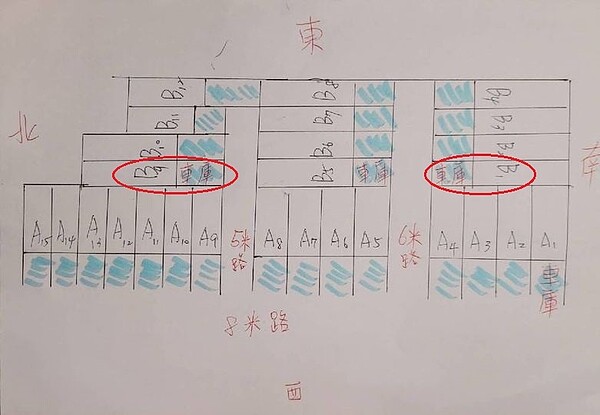 東
北
南
B12 B8 B4
B11 B7 B3
B10 B6 B2
B9 車庫 B5 車庫 車庫 B1
A15 A14 A13 A12 A11 A10 A9 5米路 A8 A7 A6 A5 6米路 A4 A3 A2 A1
車庫
8米路
西